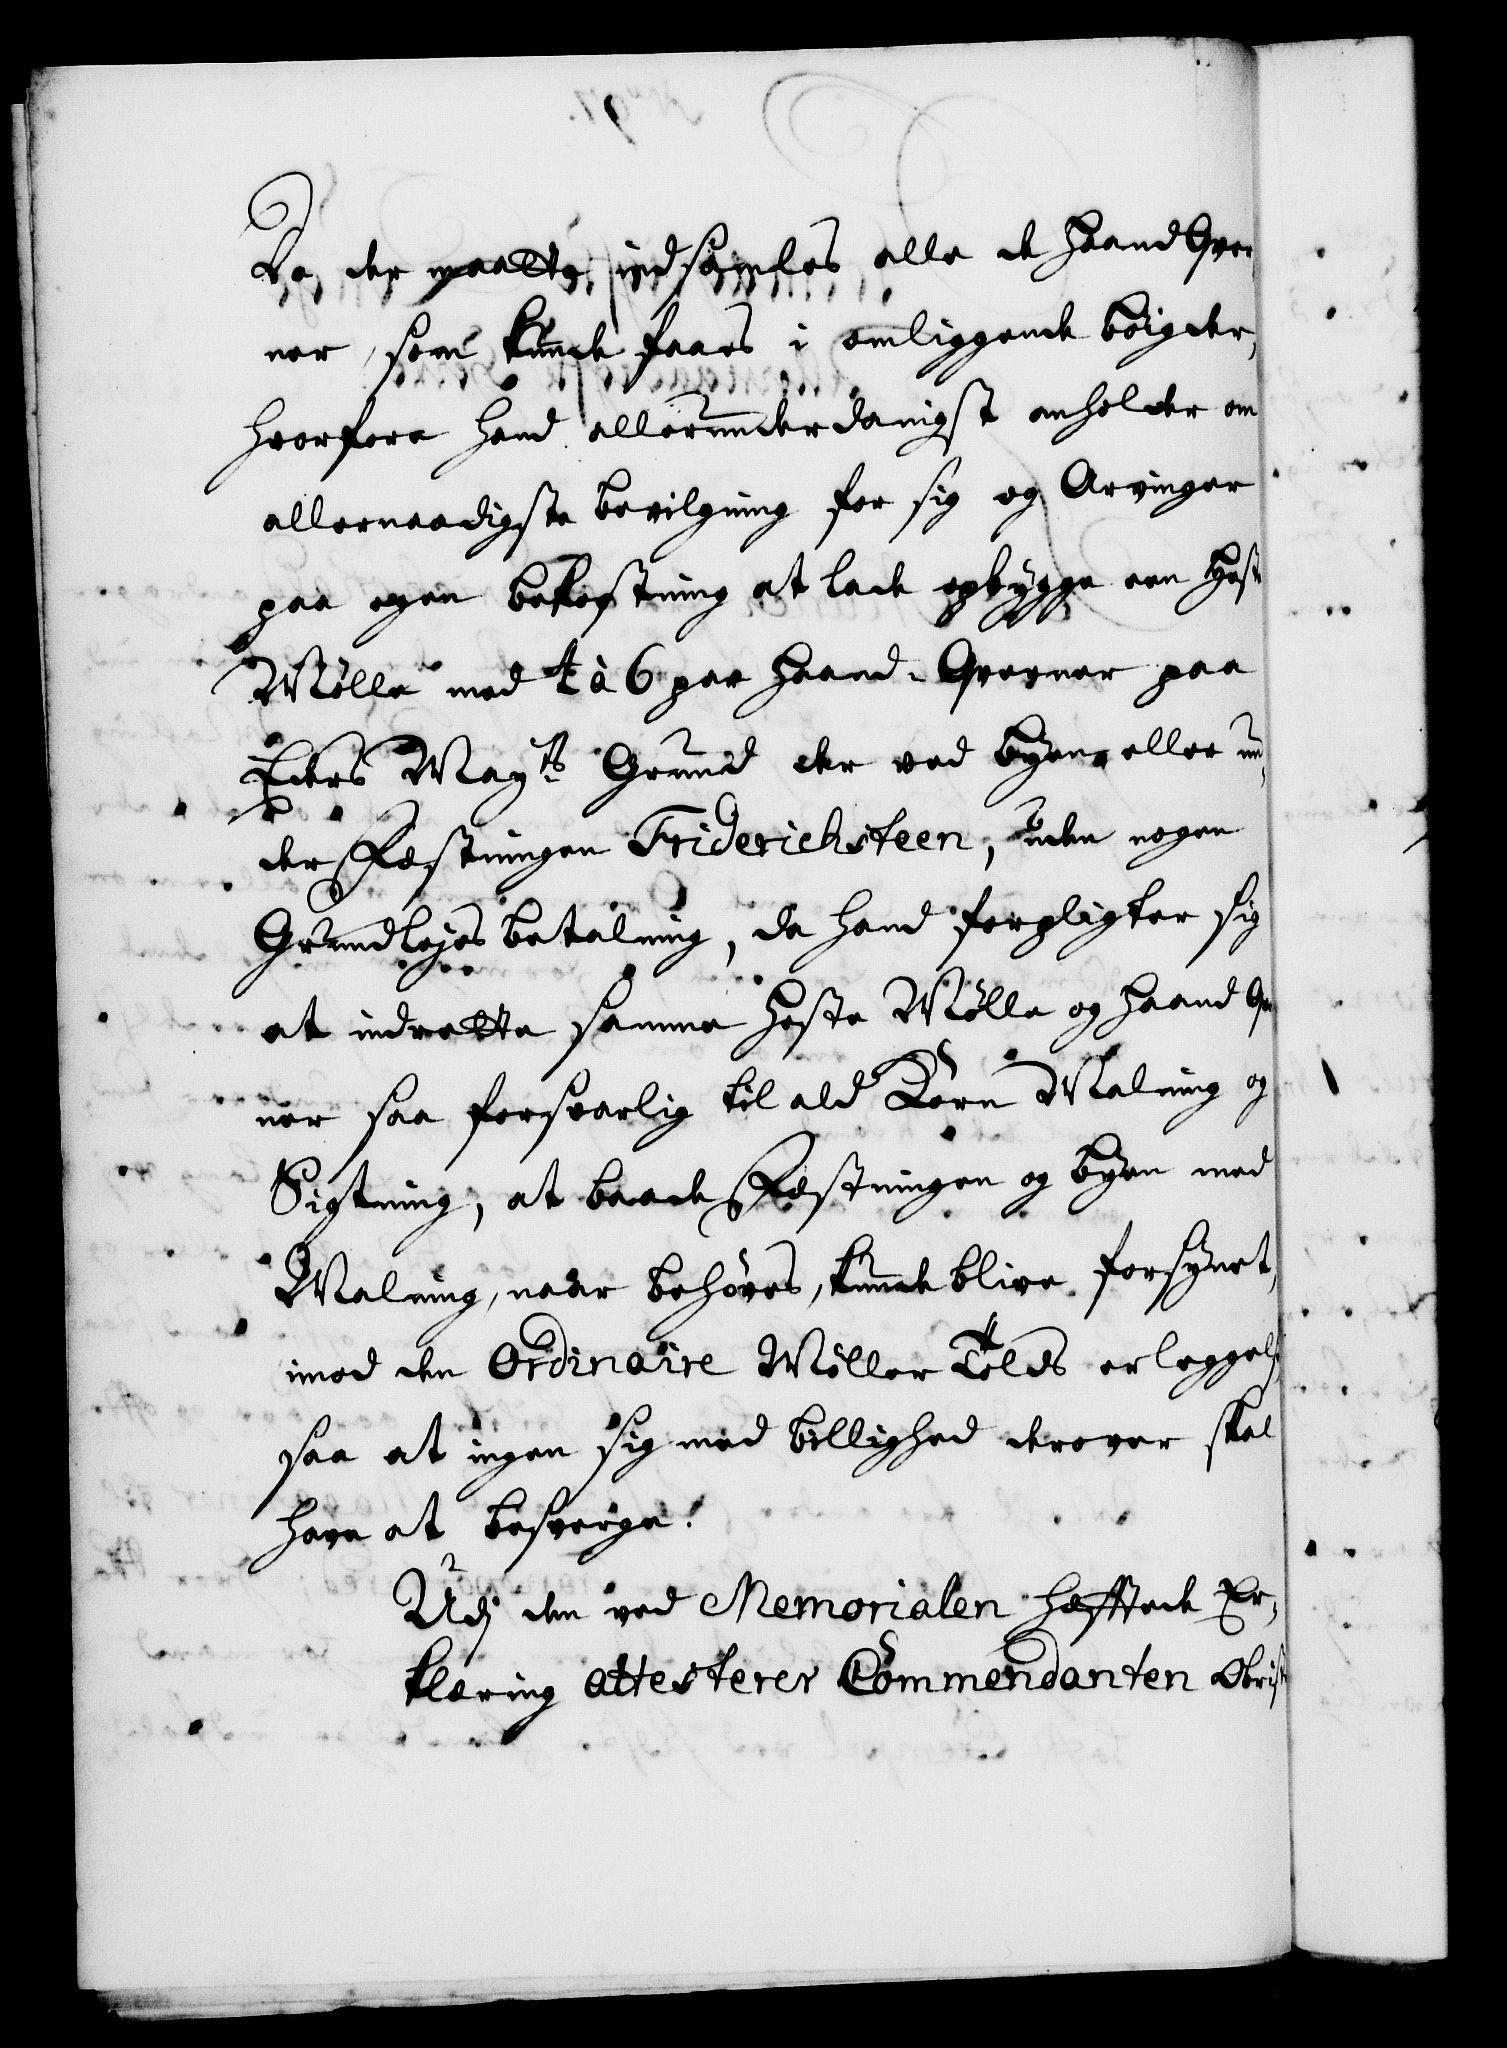 Da der maatte indsamles alle de haandqver
ner, som kunde faaes i omliggende bøigder,
hvorfore hand allerunderdanigst anholder om
allernaadigste bevilgning for sig og Arvinger
paa egen bekostning at lade opbygge een Heste
Mølle med 4 à 6 par haand-Qverner paa
Eders Mayts Grund der ved byen eller un,
der Fæstningen Friderichsteen, uden nogen
Grundlejes betalning, da hand forpligter sig
at indrette samme heste Mølle og haand Qv
ner saa forsvarlig til ald Korn Malning og
Sigtning, at baade Fæstningen og byen med
Malning, naar behøves, kunde blive forsynet,
imod den Ordinaire Møller Tolds erleggelse
saa at ingen sig med billighed derover skal
have at besverge.
Udj den ved Memorialen hæfftede Er,
klæring attesterer Commendanten Obrist